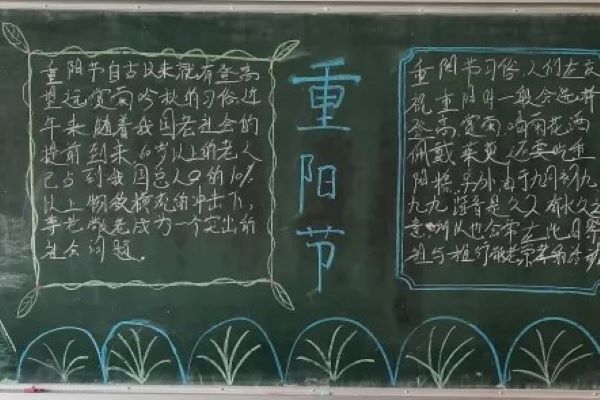 重阳节自古以来就有登高
望远赏菊吟秋的习俗,近
年来,随着我国老社会的
提前到来,60岁以上的老人
已占到我国总人口的10%
以上 物欲横流的冲击下,
孝老敬老成为一个突出的
社会问题。
重阳节
重阳节习俗,人们在庆
祝重阳时一般会选择
登高赏菊,喝菊花酒
佩戴茱萸,还要吃重
阳糕,另外,由于九月初九
九九谐音是久久有永久之
意,所以也会常在此日祭
祖与推行敬老